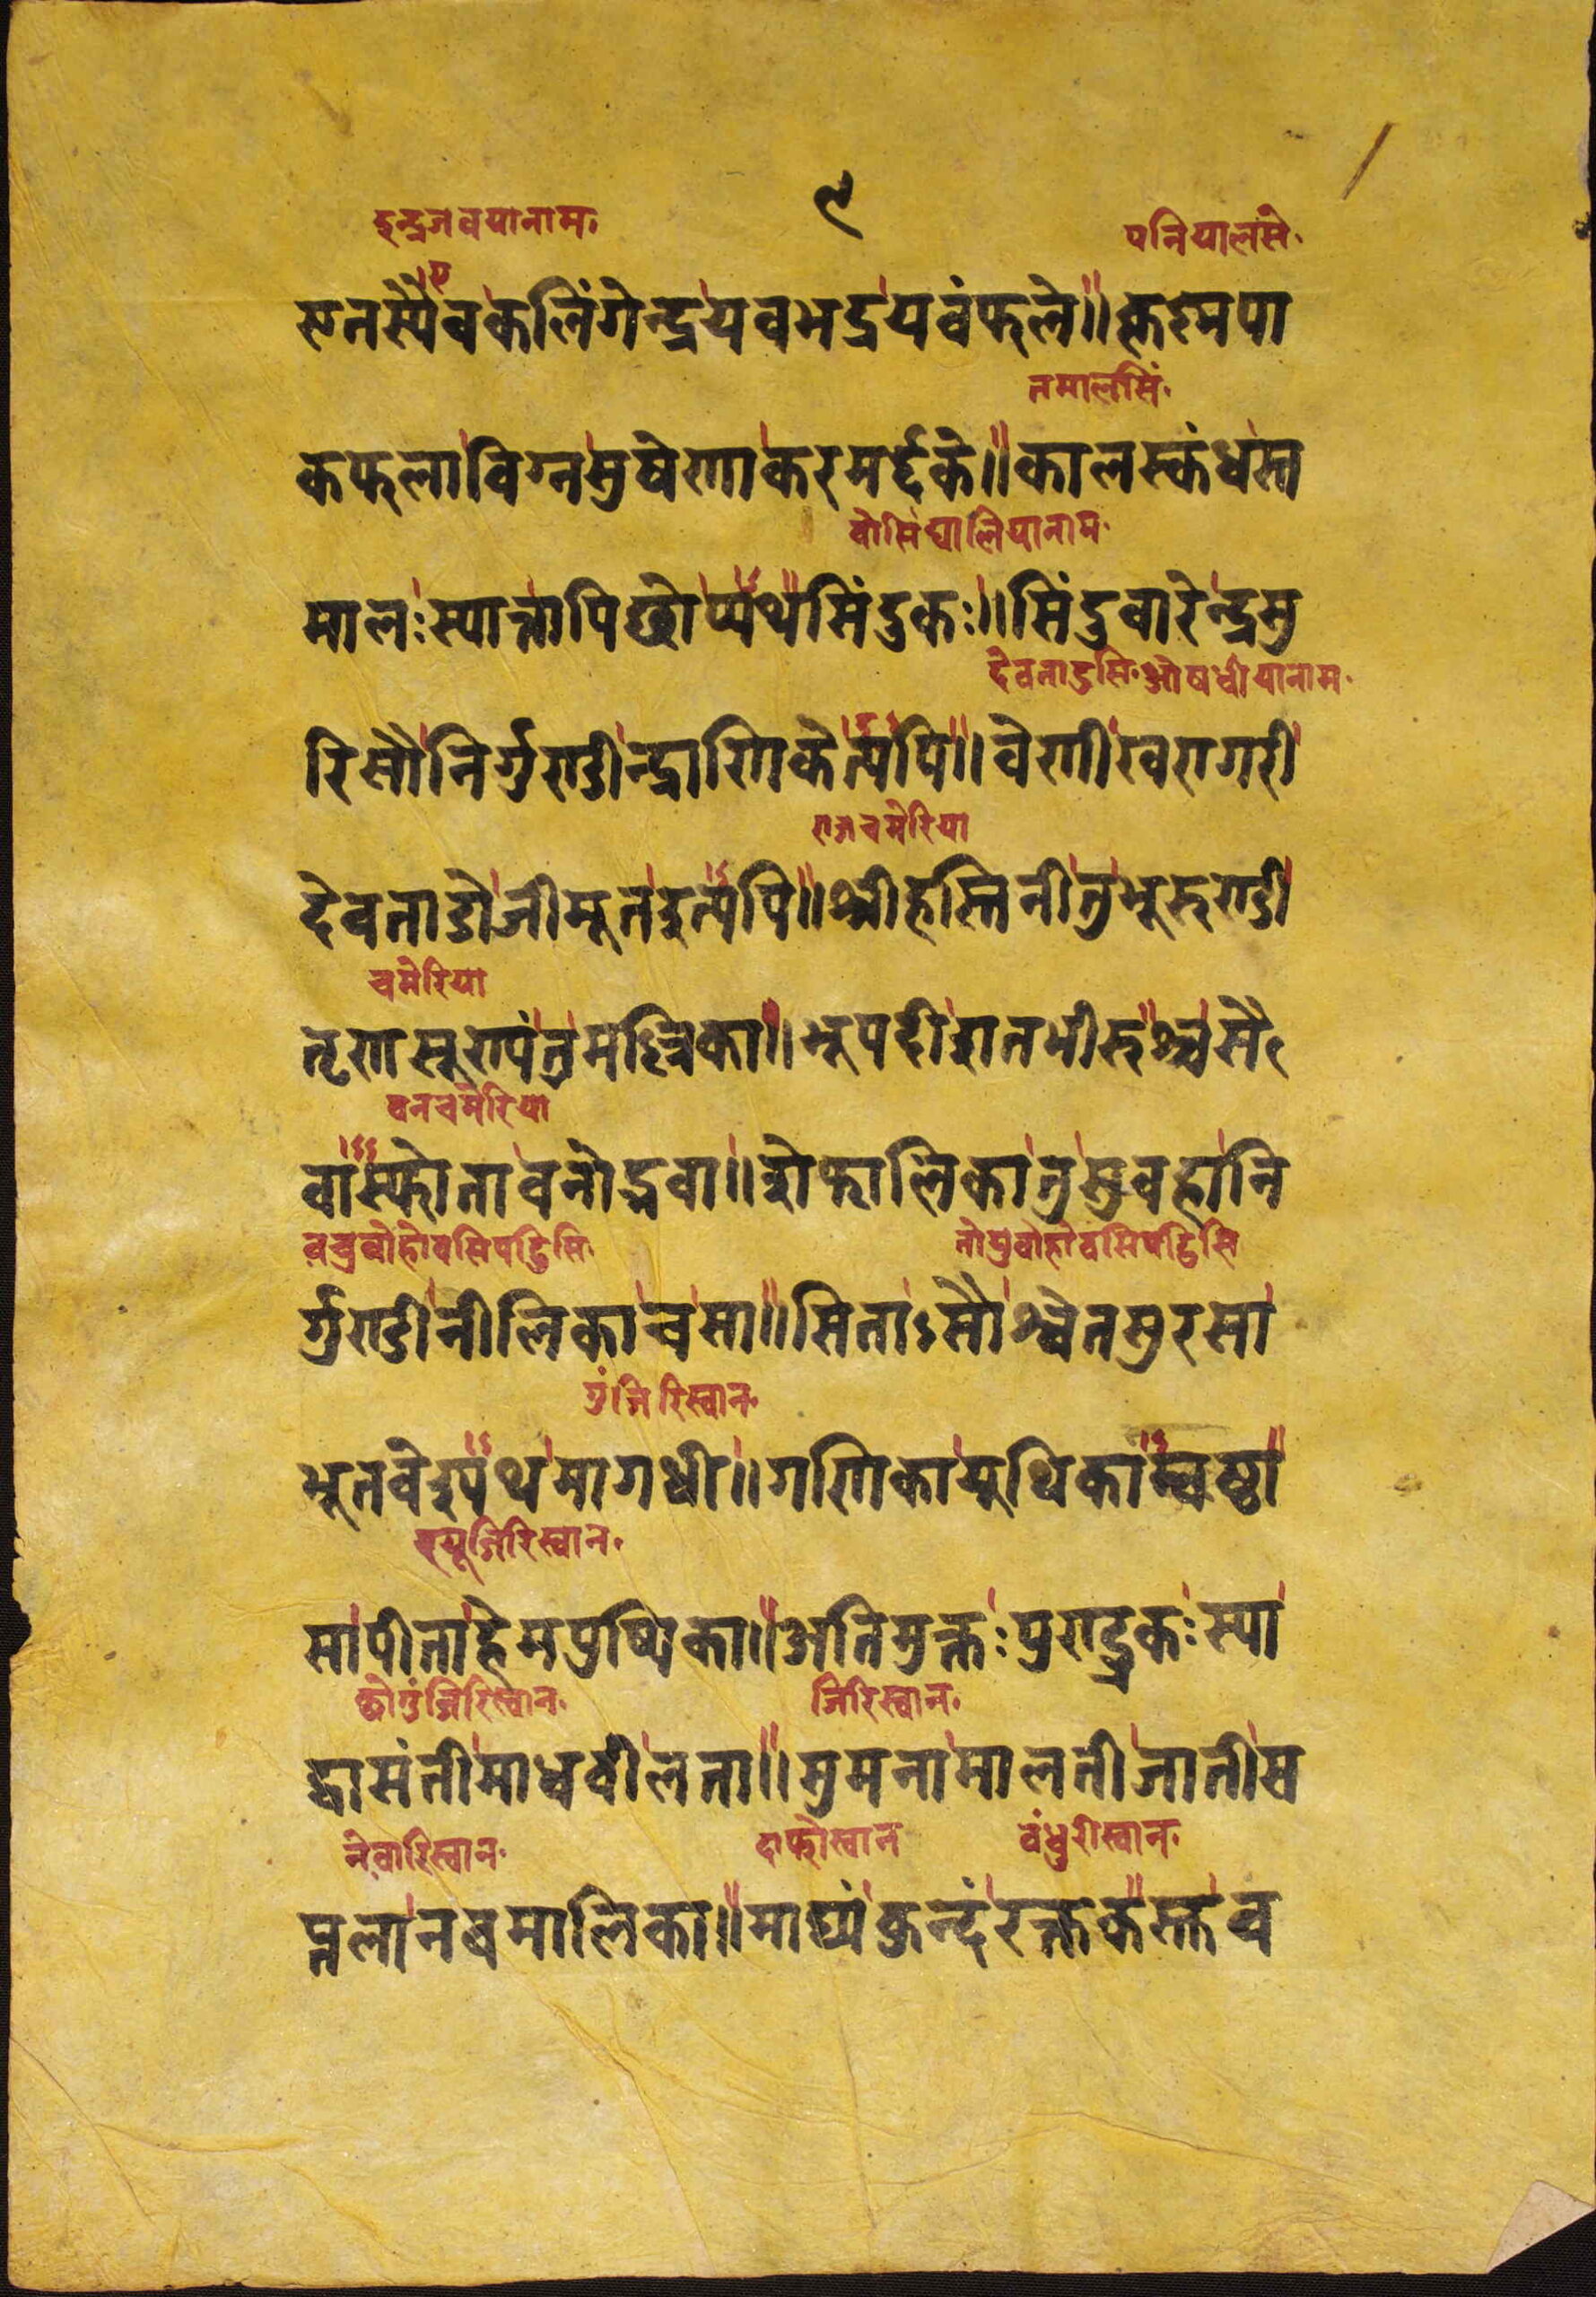 ९
इन्द्रजवयानाम. पनियालसे.
एतस्यैव कलिंगेन्द्रयवभद्रयवंफले॥ कृष्णपा
तमालसिं.
कफलाविग्नसुषेणाकरमर्द्दके॥ कालस्कंधस्त
वोसिंघालियानाम.
मालःस्यात्तापिछोप्यथसिंदुकः॥ सिंदुवारेन्द्रसु
देवताडसि. औषधीयानाम.
रिसौनिर्गुण्डीन्द्राणिकेत्यपि॥ वेणीखरागरी
राजचमेरिया
देवताडोजीमूतइत्यपि॥ श्रीहस्तिनीतुभूरुण्डी
चमेरिया
तृणसूण्यंतुमल्लिका॥ भूपदीशीतभीरुश्चसै
वनचमेरिया
वास्फोतावनोद्भवा॥ शेफालिकातुसुवहानि
वचुवोहोवसिपट्टिसि. तोयुवोहोवसिपट्टिसि
र्गुण्डीनीलिकाचसा॥ सिताऽसौश्वेतसुरसा
गुंजिरिस्वान.
भूतवेश्यथमागधी॥ गणिकायूथिकाम्बष्ठा
ह्मयूजिरिस्वान.
सापीताहेमपुष्पिका॥ अतिमुक्तःपुण्ड्रकःस्या
छोगुंजिरिस्वान. जिरिस्वान.
द्वासंतीमाधवीलता॥ सुमनामालतीजातीस
नेवारिस्वान. दाफोस्वान वंधुरीस्वान.
प्तलानवमालिका॥ माघ्यंकुन्दंरक्तकस्तुव